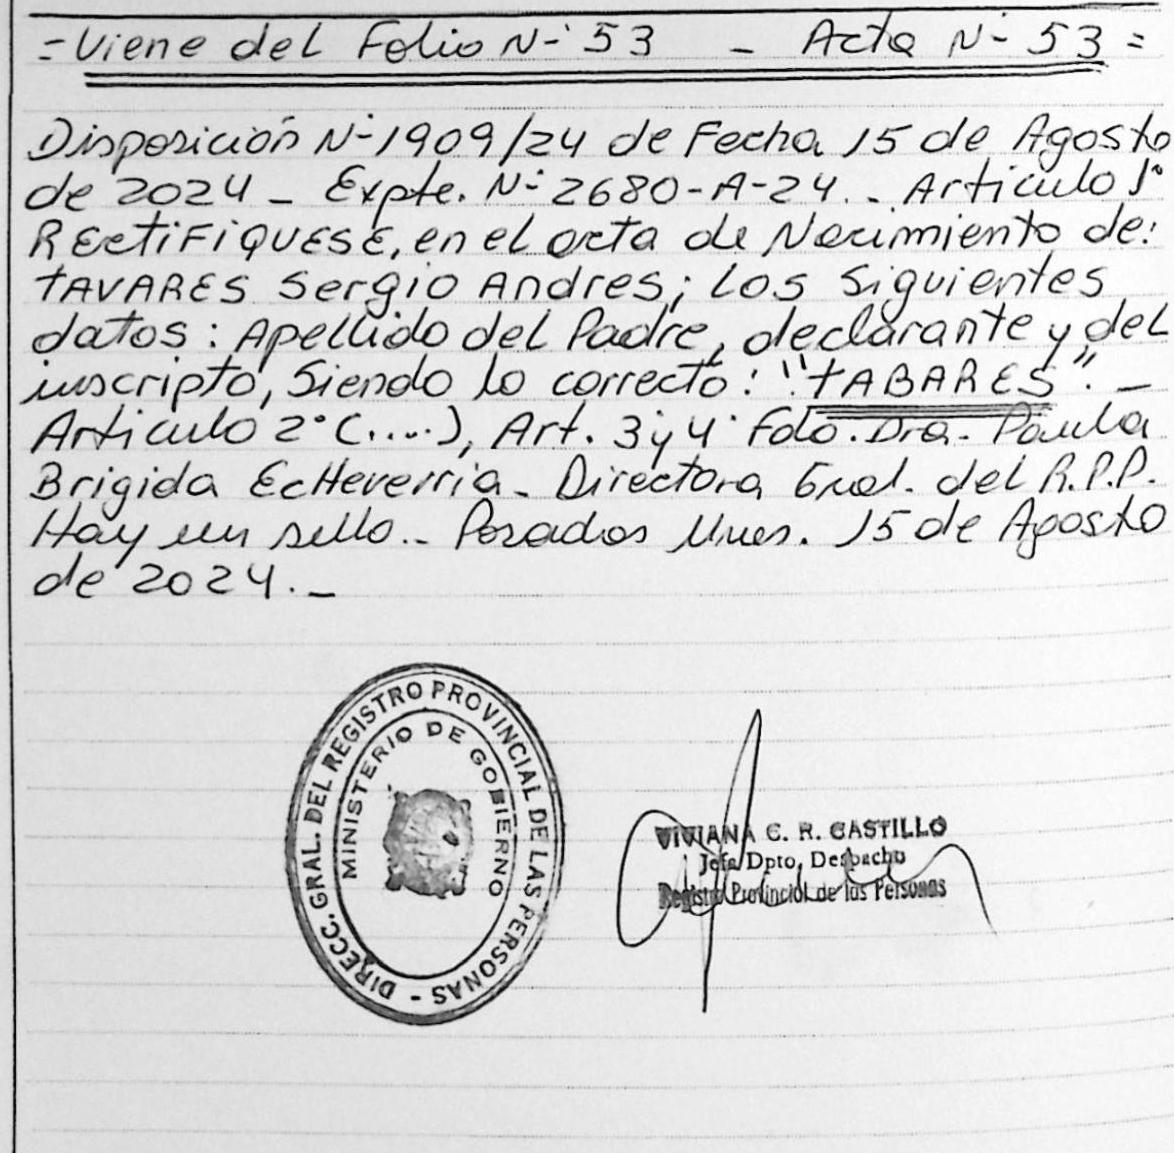 = Viene del Folio N-° 53 - Acta N- 53 =
Disposición N-° 1909/24 de Fecha 15 de Agosto
de 2024 - Expte. N-° 2680-A-24. - Articulo 1°
RECTIFIQUESE, en el acta de Nacimiento de:
TAVARES Sergio Andres; Los Siguientes
datos: Apellido del Padre, declarante y del
inscripto, Siendo lo correcto: "TABARES". -
Articulo 2° (....), Art. 3 y 4° Fdo. Dra. Paula
Brigida Echeverria - Directora Gral. del R.P.P.
Hay un sello. - Posadas Mnes. 15 de Agosto
de 2024. -
DIRECC. GRAL. DEL REGISTRO PROVINCIAL DE LAS PERSONAS -
MINISTERIO DE GOBIERNO
VIVIANA C. R. CASTILLO
Jefa Dpto. Despacho
Registro Provincial de las Personas